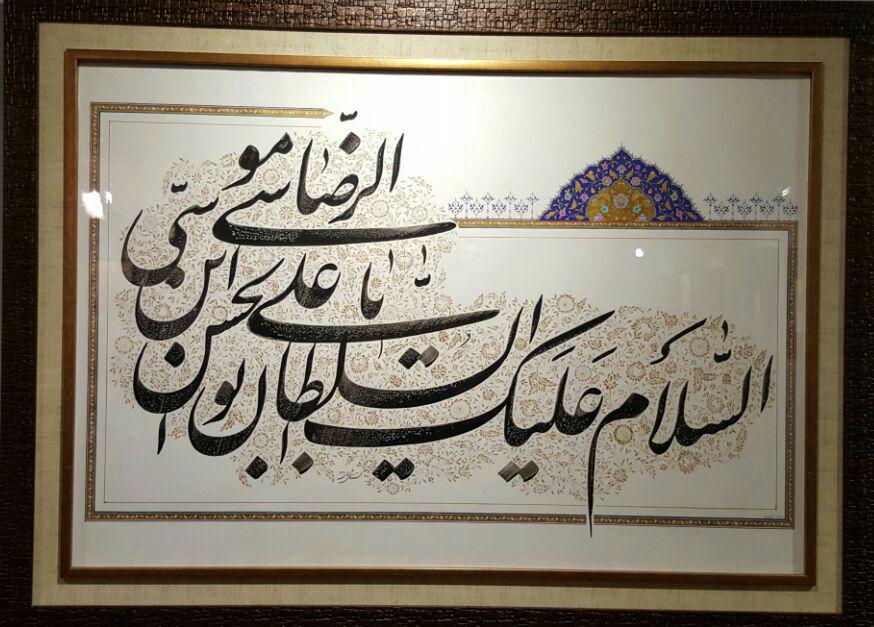 السَّلام عَلَیک
السلطان ابو الحسن
یا علی ابن
موسی الرضّا